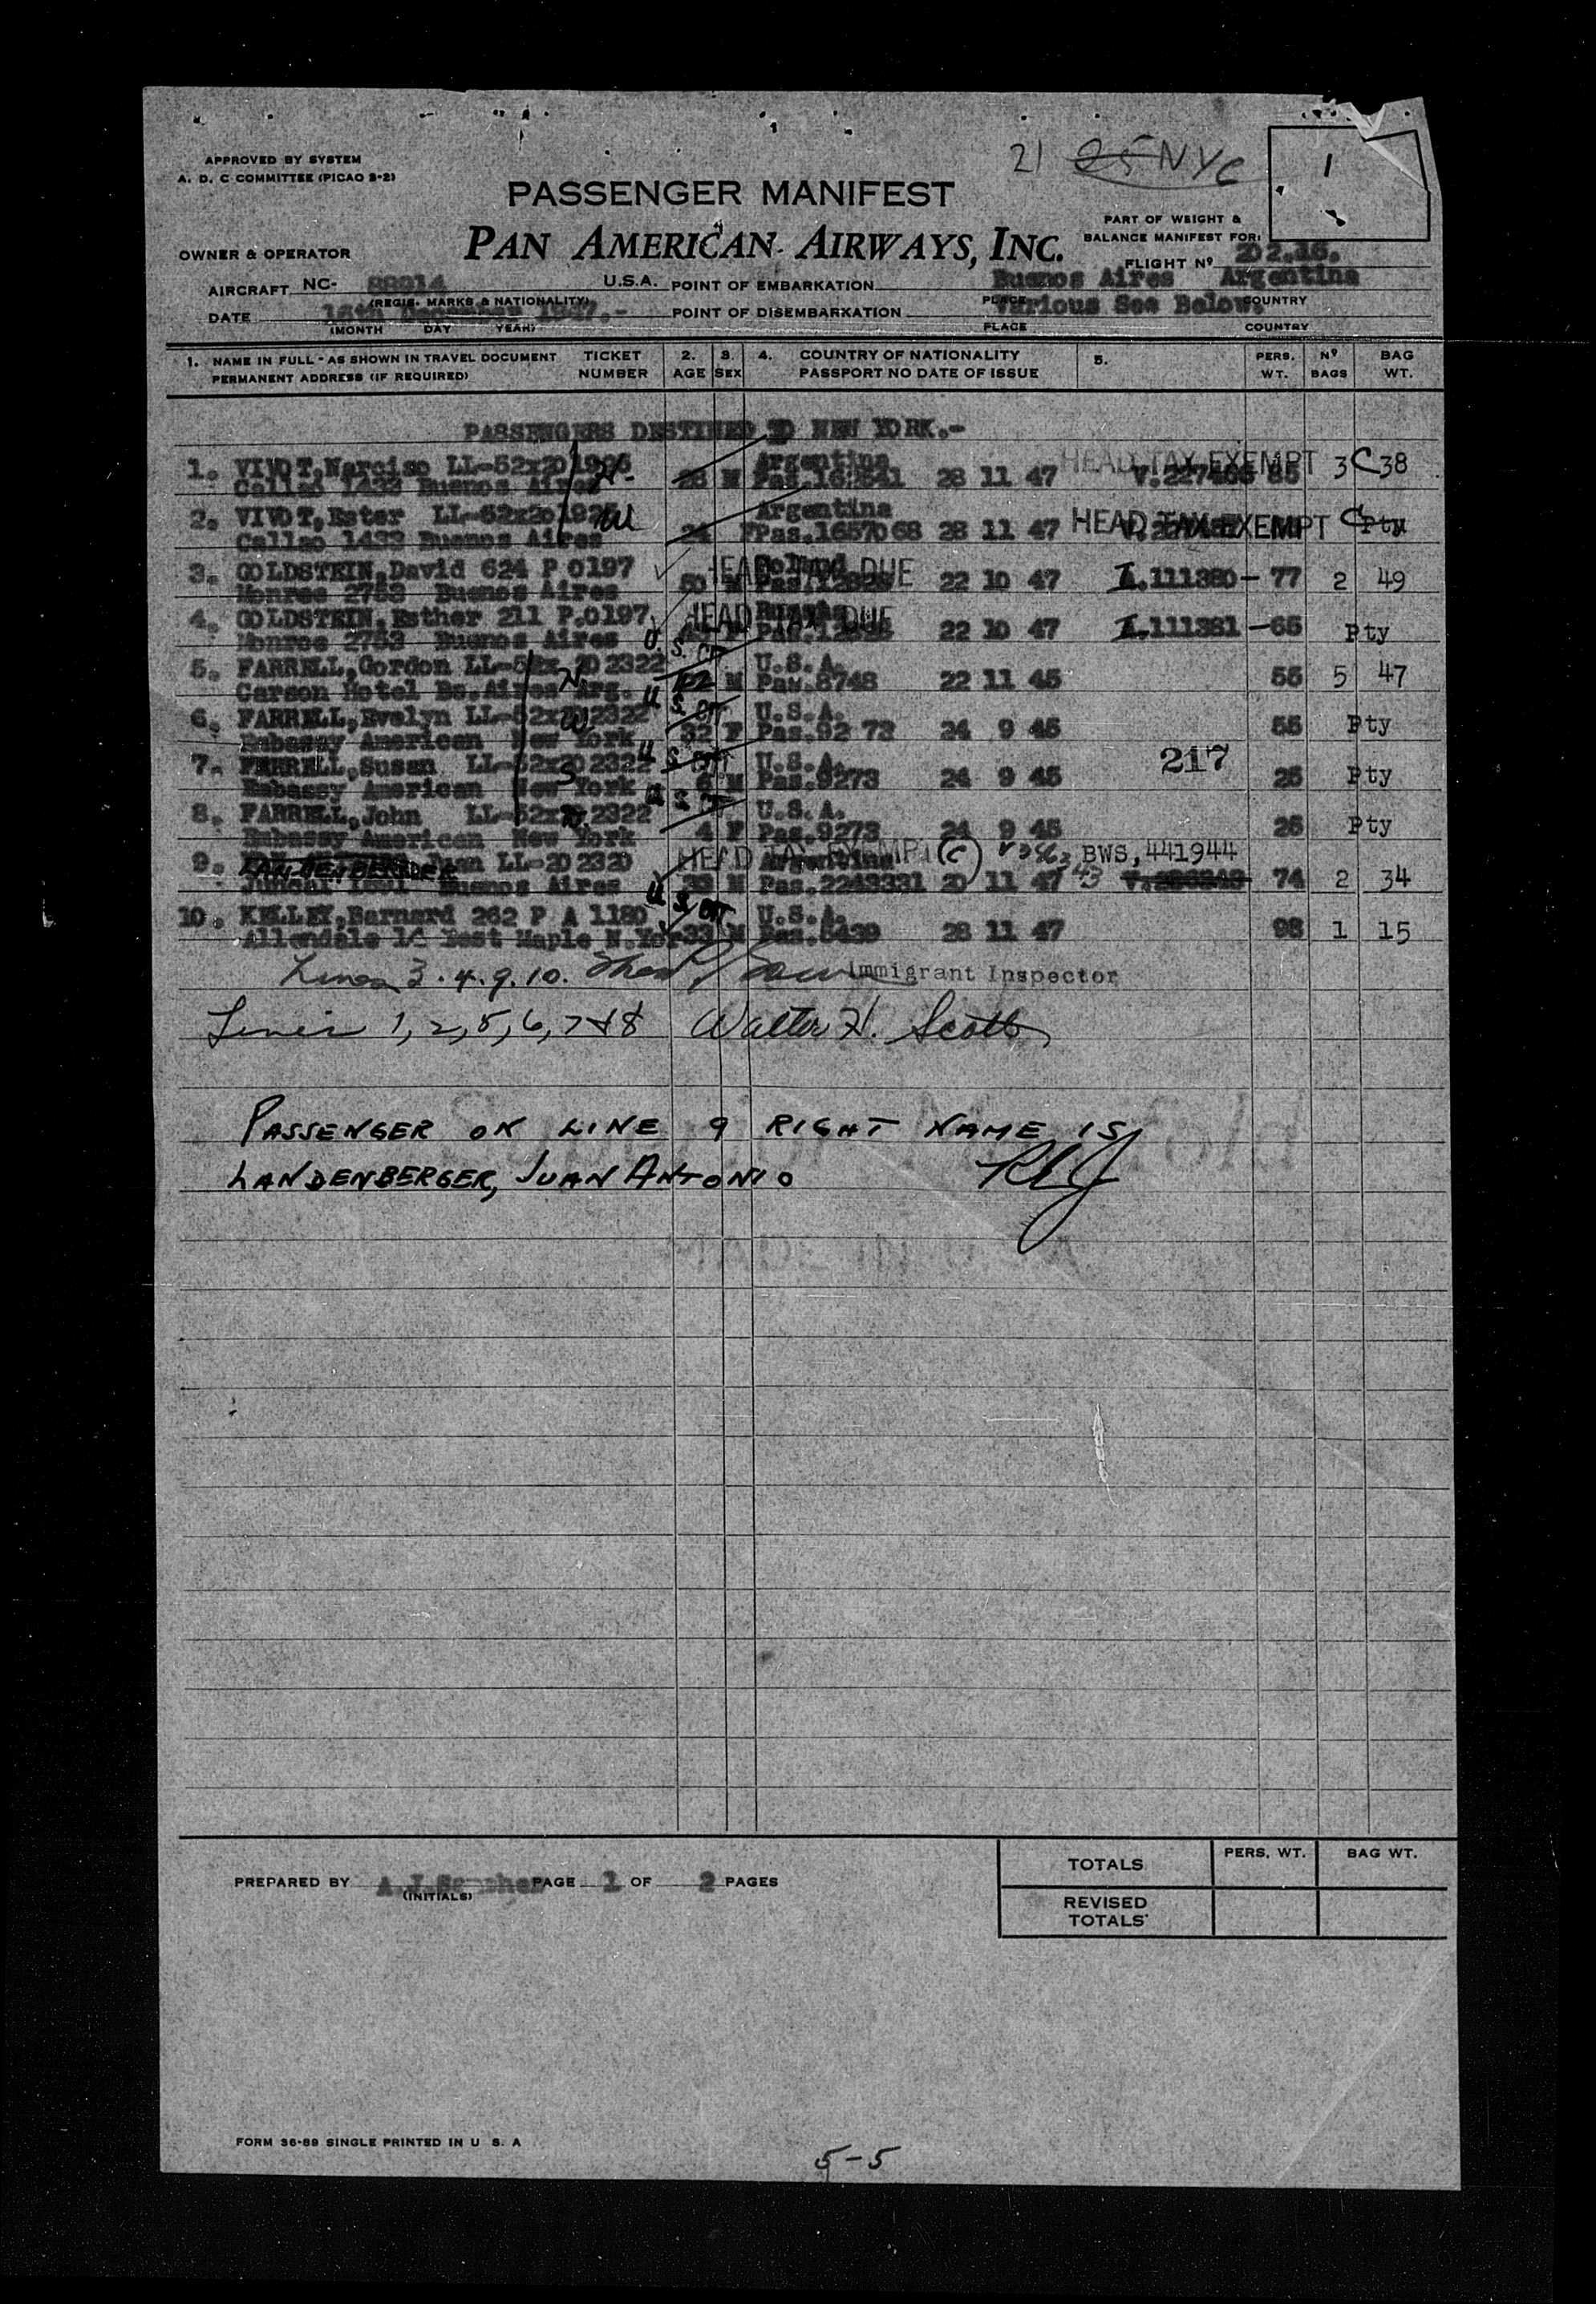 21 25 NYC
1
APPROVED BY SYSTEM
A. D. C COMMITTEE (PICAO 2-2)
PASSENGER MANIFEST
PAN AMERICAN AIRWAYS, INC.
PART OF WEIGHT &
BALANCE MANIFEST FOR:
OWNER & OPERATOR
FLIGHT Nº 202.16.
AIRCRAFT NC- 88914 U.S.A. POINT OF EMBARKATION Buenos Aires Argentina
(REGIS. MARKS & NATIONALITY) PLACE COUNTRY
DATE 16th December 1947.- POINT OF DISEMBARKATION Various See Below.
(MONTH DAY YEAR) PLACE COUNTRY
1. NAME IN FULL - AS SHOWN IN TRAVEL DOCUMENT TICKET 2. 3. 4. COUNTRY OF NATIONALITY 5. PERS. Nº BAG
PERMANENT ADDRESS (IF REQUIRED) NUMBER AGE SEX PASSPORT NO DATE OF ISSUE WT. BAGS WT.
PASSENGERS DESTINED TO NEW YORK.-
1. VIVOT, Narciso LL-52x20 1926 Argentina HEAD TAX EXEMPT
Callao 1433 Buenos Aires M 28 11 47 85 3 C 38
2. VIVOT, Ester LL-52x20 1925 Argentina HEAD TAX EXEMPT
Callao 1433 Buenos Aires 24 F Pas.1657068 28 11 47 C Pty
3. GOLDSTEIN, David 624 P 0197 Poland HEAD TAX DUE
Monroe 2753 Buenos Aires 50 M 22 10 47 I.111380 - 77 2 49
4. GOLDSTEIN, Esther 211 P.0197 HEAD TAX DUE
Monroe 2753 Buenos Aires F 22 10 47 I.111381 - 65 Pty
5. FARRELL, Gordon LL-52x 20 2322 U.S. CIT U.S.A.
Carson Hotel Bs.Aires Arg. M Pas.8748 22 11 45 55 5 47
6. FARRELL, Evelyn LL-52x20 2322 U.S. CIT U.S.A.
Embassy American New York 32 F Pas.9273 24 9 45 55 Pty
7. FERRELL, Susan LL-52x20 2322 U.S. CIT U.S.A. 217
Embassy American New York 6 M Pas.9273 24 9 45 25 Pty
8. FARRELL, John LL-52x20 2322 U.S. CIT U.S.A.
Embassy American New York 4 F Pas.9273 24 9 45 25 Pty
9. LANDENBERGER Juan LL-20 2320 HEAD TAX EXEMPT (C) Argentina BWS, 441944
Juncal Buenos Aires M Pas.2243331 20 11 47 74 2 34
10. KELLEY, Barnard 262 P A 1180 U.S. CIT U.S.A.
Allendale West Maple N.York 33 M 28 11 47 98 1 15
Lines 3.4.9.10. Immigrant Inspector
Lines 1, 2, 5, 6, 7 & 8 Walter H. Scott
PASSENGER ON LINE 9 RIGHT NAME IS
LANDENBERGER, JUAN ANTONIO
PREPARED BY A.J.Sanchez PAGE 1 OF 2 PAGES
(INITIALS)
TOTALS PERS. WT. BAG WT.
REVISED
TOTALS
FORM 36-89 SINGLE PRINTED IN U S. A
5-5